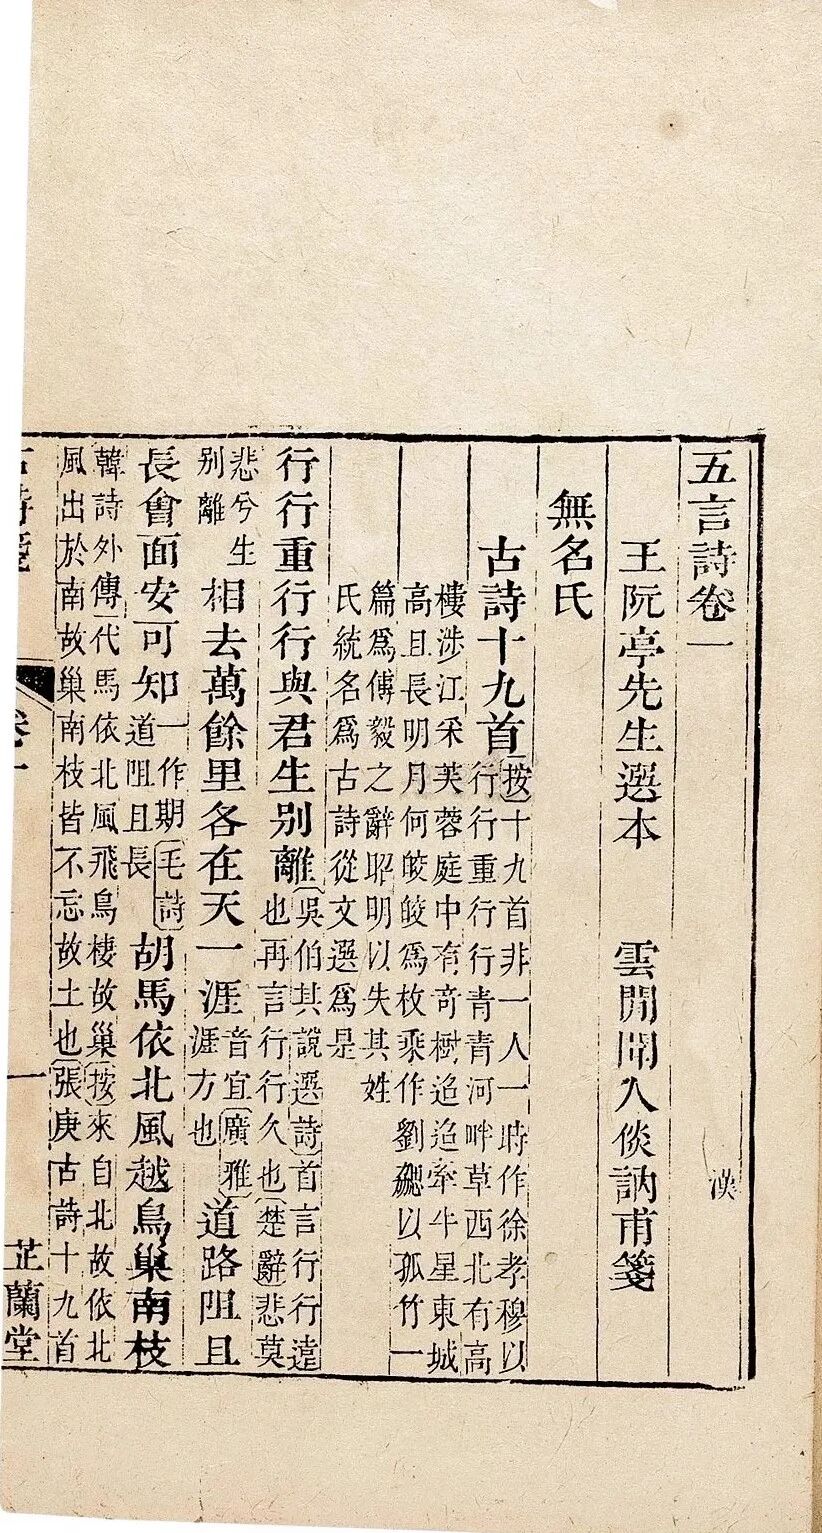 五言詩卷一 漢
王阮亭先生選本 雲間聞人倓訥甫箋
無名氏
古詩十九首 按十九首非一人一時作徐孝穆以
行行重行行青青河畔草西北有高
樓涉江采芙蓉庭中有奇樹迢迢牽牛星東城
高且長明月何皎皎爲枚乘作劉勰以孤竹一
篇爲傅毅之辭昭明以失其姓
氏統名爲古詩從文選爲是
行行重行行與君生别離 吳伯其說選詩首言行行遠
也再言行行久也楚辭悲莫
悲兮生
别離
相去萬餘里各在天一涯 音宜廣雅
涯方也
道路阻且
長會面安可知 一作期毛詩
道阻且長
胡馬依北風越鳥巢南枝
韓詩外傳代馬依北風飛鳥棲故巢按來自北故依北
風出於南故巢南枝皆不忘故土也張庚古詩十九首
古詩箋 卷一 一 芷蘭堂